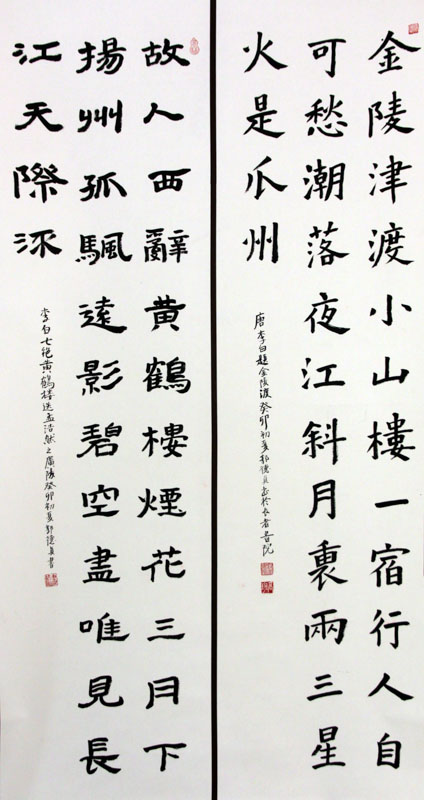 金陵津渡小山樓一宿行人自
可愁潮落夜江斜月裏兩三星
火是瓜州
唐李白題金陵渡癸卯初夏郭德貞書於
故人西辭黃鶴樓煙花三月下
揚州孤颿遠影碧空盡唯見長
江天際流
李白七絕黃鶴樓送孟浩然之廣陵癸卯初夏郭德貞書